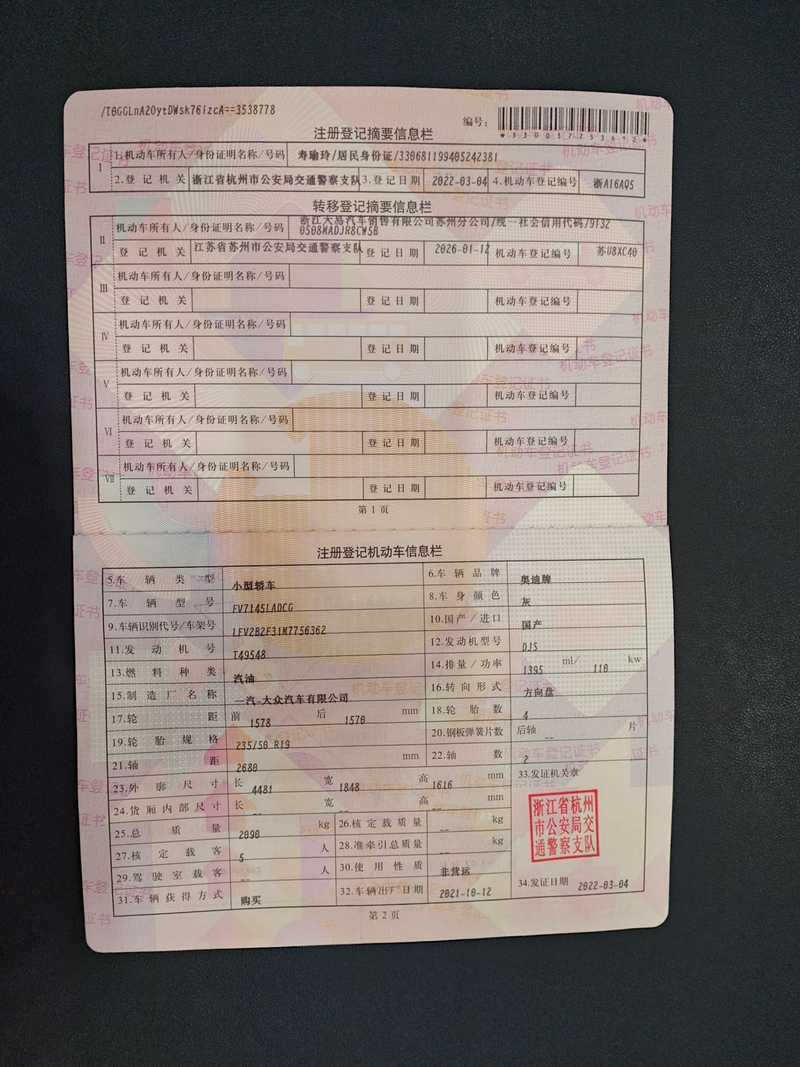 /T0GGLnA2OytDWsk76izcA==3538778
编号:
注册登记摘要信息栏
*330037753692*
I 1.机动车所有人/身份证明名称/号码 寿瑜玲/居民身份证/330681199405242381
2.登记机关 浙江省杭州市公安局交通警察支队 3.登记日期 2022-03-04 4.机动车登记编号 浙A16AQ5
转移登记摘要信息栏
II 机动车所有人/身份证明名称/号码 浙江大易汽车销售有限公司苏州分公司/统一社会信用代码/91320508MADJR8CW5B
登记机关 江苏省苏州市公安局交通警察支队 登记日期 2026-01-12 机动车登记编号 苏U8XC40
III 机动车所有人/身份证明名称/号码
登记机关 登记日期 机动车登记编号
IV 机动车所有人/身份证明名称/号码
登记机关 登记日期 机动车登记编号
V 机动车所有人/身份证明名称/号码
登记机关 登记日期 机动车登记编号
VI 机动车所有人/身份证明名称/号码
登记机关 登记日期 机动车登记编号
VII 机动车所有人/身份证明名称/号码
登记机关 登记日期 机动车登记编号
第1页
注册登记机动车信息栏
5.车辆类型 小型轿车 6.车辆品牌 奥迪牌
7.车辆型号 FV7145LADCG 8.车身颜色 灰
9.车辆识别代号/车架号 LFV2B2F31M7756362 10.国产/进口 国产
11.发动机号 T49548 12.发动机型号 DJS
13.燃料种类 汽油 14.排量/功率 1395 ml/ 110 kw
15.制造厂名称 一汽-大众汽车有限公司 16.转向形式 方向盘
17.轮距 前 1578 后 1570 mm 18.轮胎数 4
19.轮胎规格 235/50 R19 20.钢板弹簧片数 后轴 -- 片
21.轴距 2680 mm 22.轴数 2
23.外廓尺寸 长 4481 宽 1848 高 1616 mm 33.发证机关章
24.货厢内部尺寸 长 -- 宽 -- 高 -- mm
浙江省杭州市公安局交通警察支队
25.总质量 2090 kg 26.核定载质量 -- kg
27.核定载客 5 人 28.准牵引总质量 -- kg
29.驾驶室载客 -- 人 30.使用性质 非营运
31.车辆获得方式 购买 32.车辆出厂日期 2021-10-12 34.发证日期 2022-03-04
第2页